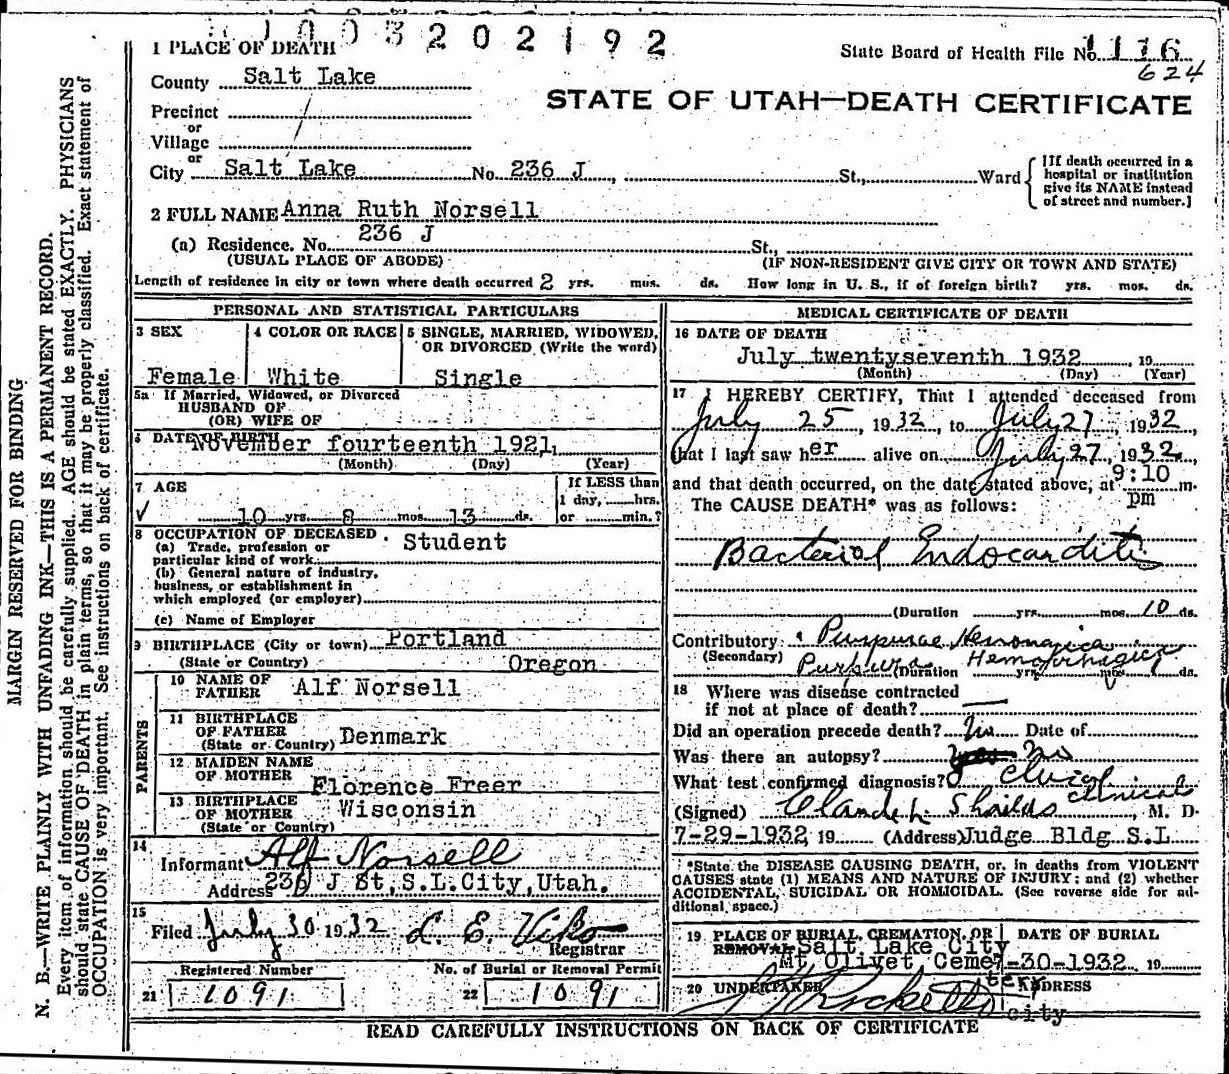 1003202192
1 PLACE OF DEATH
State Board of Health File No. 1116
624
County Salt Lake
STATE OF UTAH—DEATH CERTIFICATE
Precinct
or
Village
or
City Salt Lake No. 236 J , St., Ward
[If death occurred in a
hospital or institution
give its NAME instead
of street and number.]
2 FULL NAME Anna Ruth Norsell
(a) Residence. No. 236 J St.,
(USUAL PLACE OF ABODE) (IF NON-RESIDENT GIVE CITY OR TOWN AND STATE)
Length of residence in city or town where death occurred 2 yrs. mos. ds. How long in U. S., if of foreign birth? yrs. mos. ds.
PERSONAL AND STATISTICAL PARTICULARS
3 SEX
Female
4 COLOR OR RACE
White
5 SINGLE, MARRIED, WIDOWED,
OR DIVORCED (Write the word)
Single
5a If Married, Widowed, or Divorced
HUSBAND OF
(OR) WIFE OF
6 DATE OF BIRTH
November fourteenth 1921
(Month) (Day) (Year)
7 AGE
✓ 10 yrs. 8 mos. 13 ds.
If LESS than
1 day, hrs.
or min.?
8 OCCUPATION OF DECEASED
(a) Trade, profession or
particular kind of work Student
(b) General nature of industry,
business, or establishment in
which employed (or employer)
(c) Name of Employer
9 BIRTHPLACE (City or town) Portland
(State or Country) Oregon
PARENTS
10 NAME OF
FATHER Alf Norsell
11 BIRTHPLACE
OF FATHER
(State or Country) Denmark
12 MAIDEN NAME
OF MOTHER Florence Freer
13 BIRTHPLACE
OF MOTHER
(State or Country) Wisconsin
14
Informant Alf Norsell
Address 236 J St, S.L.City, Utah.
15
Filed July 30 1932 L. E. Viko
Registrar
Registered Number
21 1091
No. of Burial or Removal Permit
22 1091
MEDICAL CERTIFICATE OF DEATH
16 DATE OF DEATH
July twentyseventh 1932, 19
(Month) (Day) (Year)
17 I HEREBY CERTIFY, That I attended deceased from
July 25, 1932, to July 27, 1932,
that I last saw her alive on July 27, 1932,
and that death occurred, on the date stated above, at 9:10 m.
pm
The CAUSE DEATH* was as follows:
Bacterial Endocarditis
(Duration yrs. mos. 10 ds.
Contributory Purpurae Hemoragica
(Secondary) Purpura Hemorrhagica
(Duration yrs. mos. ds.
18 Where was disease contracted
if not at place of death? —
Did an operation precede death? No Date of
Was there an autopsy? No
What test confirmed diagnosis? Clinical
clinical
(Signed) Claude L. Shields, M. D.
7-29-1932, 19 (Address) Judge Bldg S.L
*State the DISEASE CAUSING DEATH, or, in deaths from VIOLENT
CAUSES state (1) MEANS AND NATURE OF INJURY; and (2) whether
ACCIDENTAL, SUICIDAL OR HOMICIDAL. (See reverse side for ad-
ditional space.)
19 PLACE OF BURIAL, CREMATION, OR
REMOVAL Salt Lake City
Mt Olivet Cemetery
DATE OF BURIAL
7-30-1932, 19
20 UNDERTAKER
ADDRESS
city
READ CAREFULLY INSTRUCTIONS ON BACK OF CERTIFICATE
MARGIN RESERVED FOR BINDING
N. B.—WRITE PLAINLY WITH UNFADING INK—THIS IS A PERMANENT RECORD.
Every item of information should be carefully supplied. AGE should be stated EXACTLY. PHYSICIANS
should state CAUSE OF DEATH in plain terms, so that it may be properly classified. Exact statement of
OCCUPATION is very important. See instructions on back of certificate.